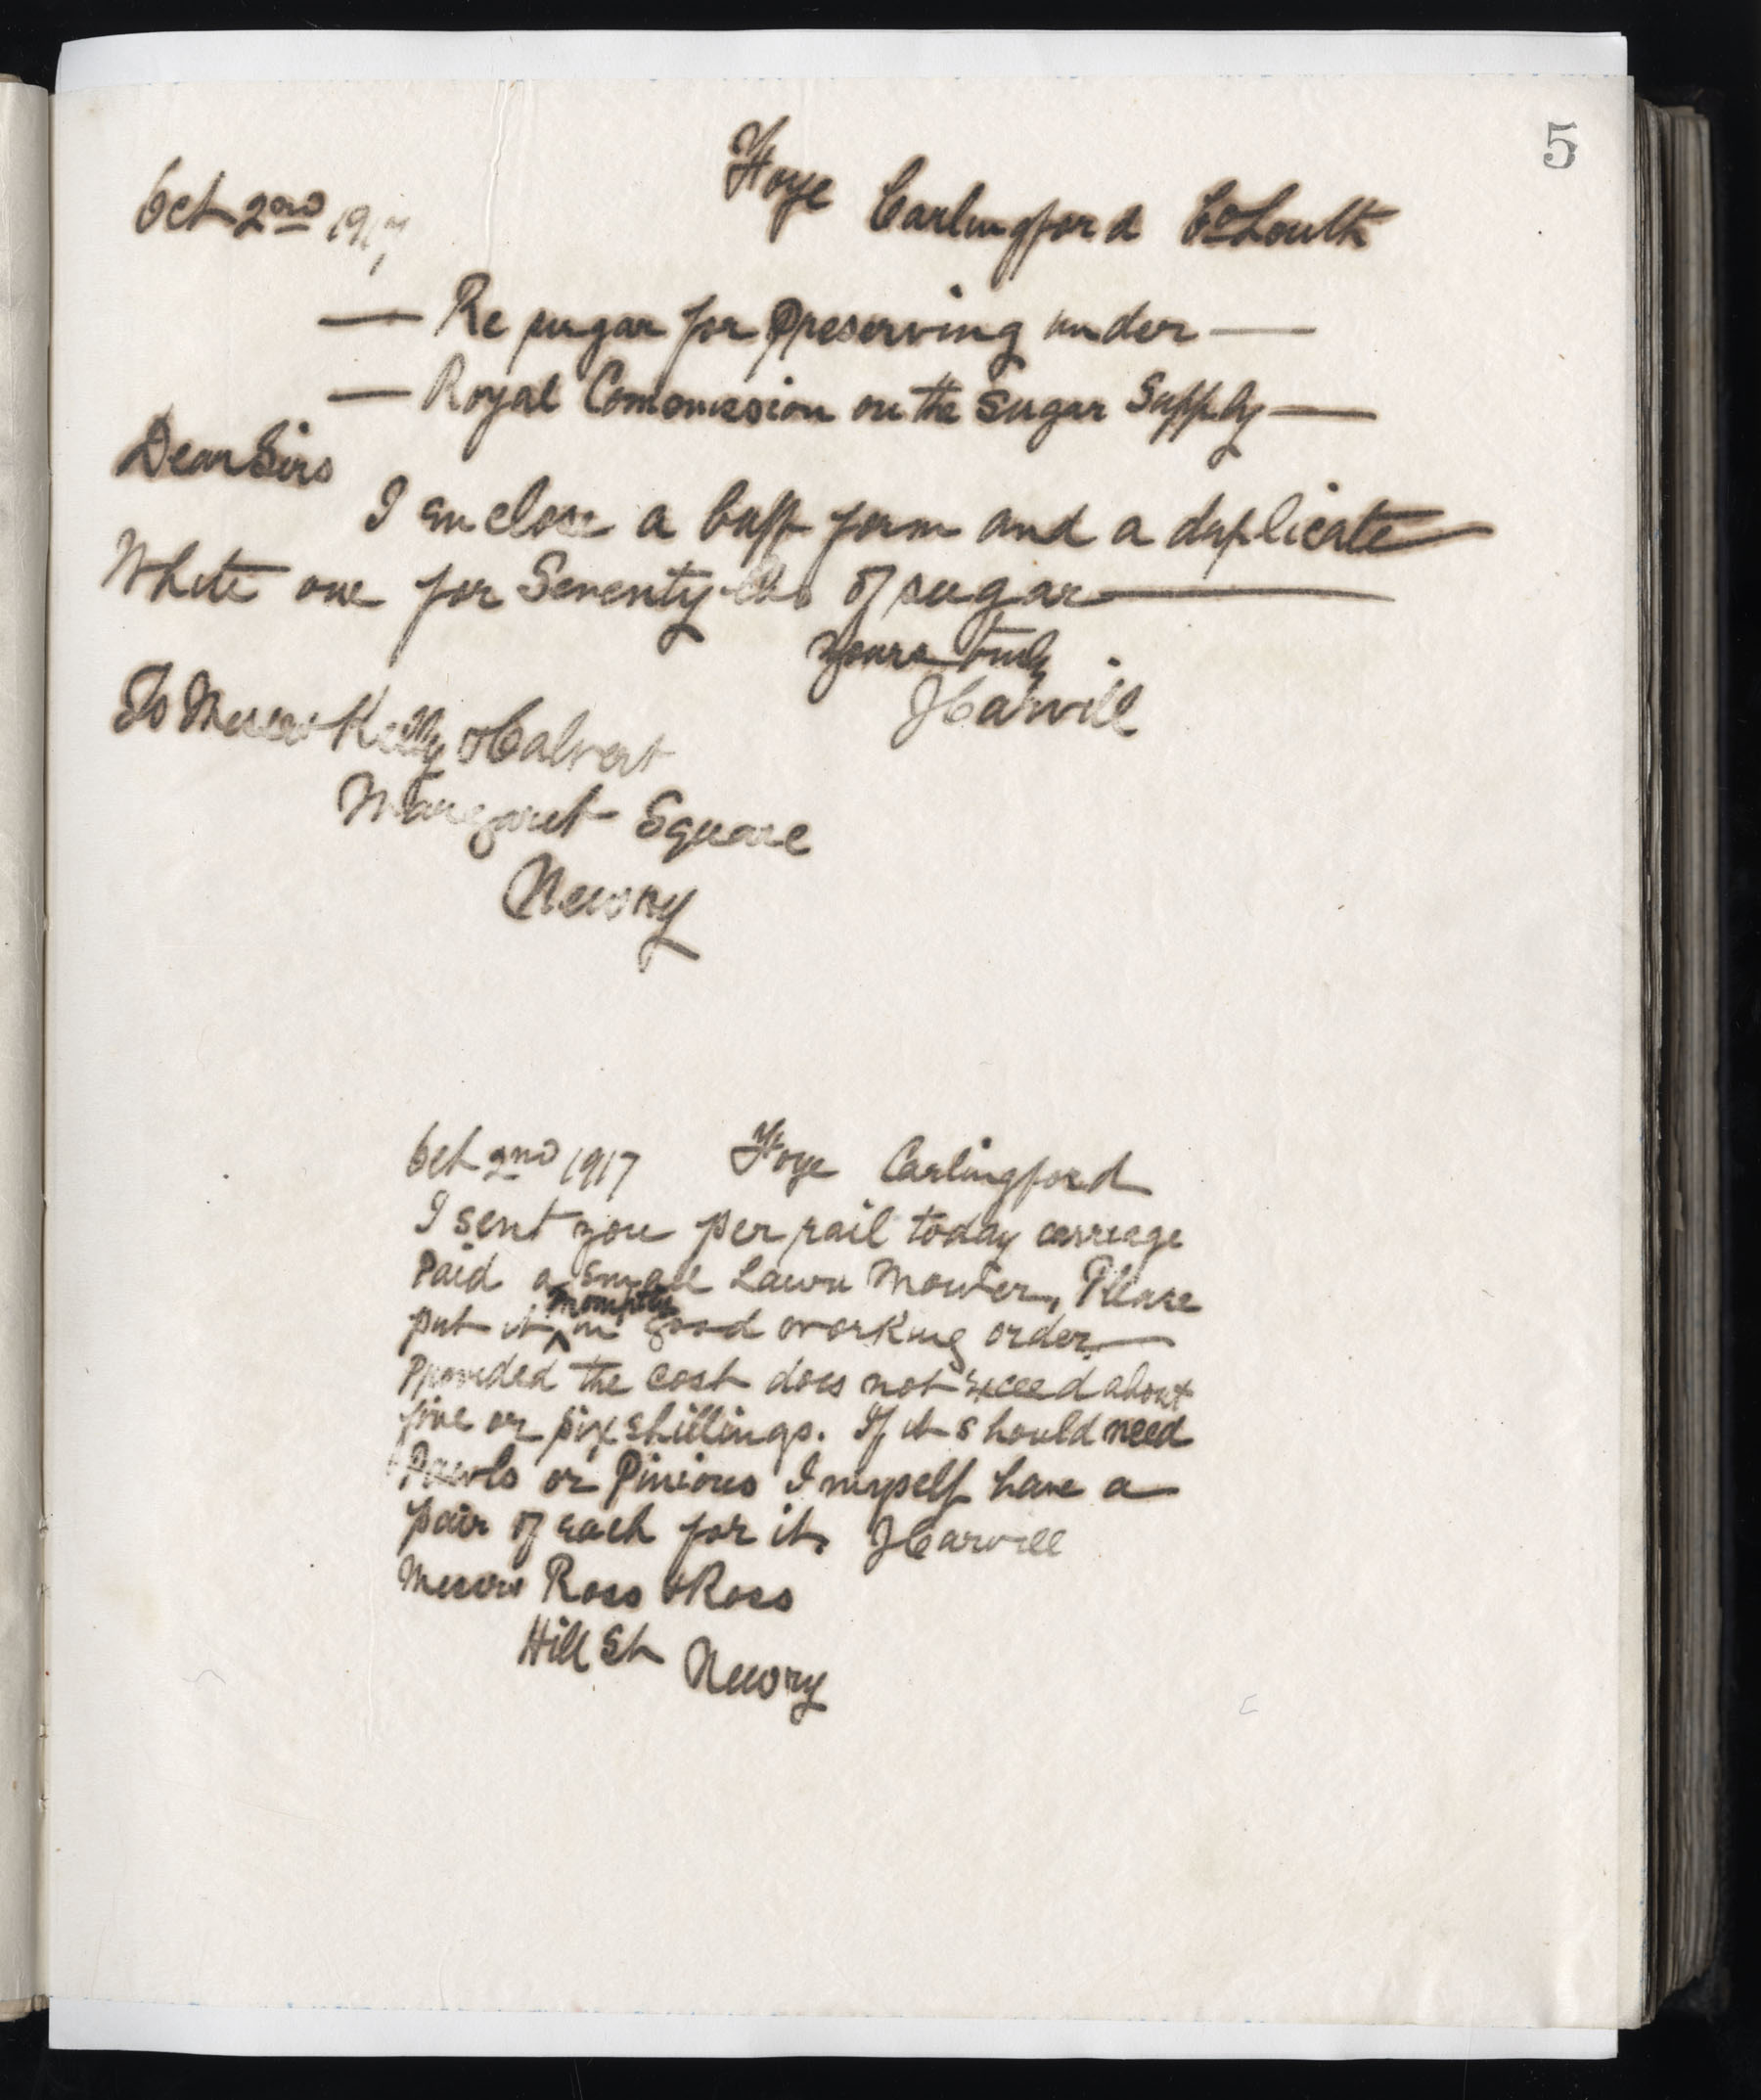 5
Oct 2nd 1917
Foye Carlingford Co Louth
— Re sugar for Preserving under —
— Royal Commission on the Sugar Supply —
Dear Sirs
I enclose a buff form and a duplicate
White one for Seventy lbs of sugar
yours truly
J Carvill
To Messrs Kelly & Calvert
Margaret Square
Newry
Oct 2nd 1917 Foye Carlingford
I sent you per rail today carriage
Paid a small Lawn Mower, Please
promptly
put it ^ in good working order
Provided the cost does not exceed about
five or six shillings. If it should need
Pawls or Pinions I myself have a
pair of each for it. J Carvill
Messrs Ross & Ross
Hill St Newry